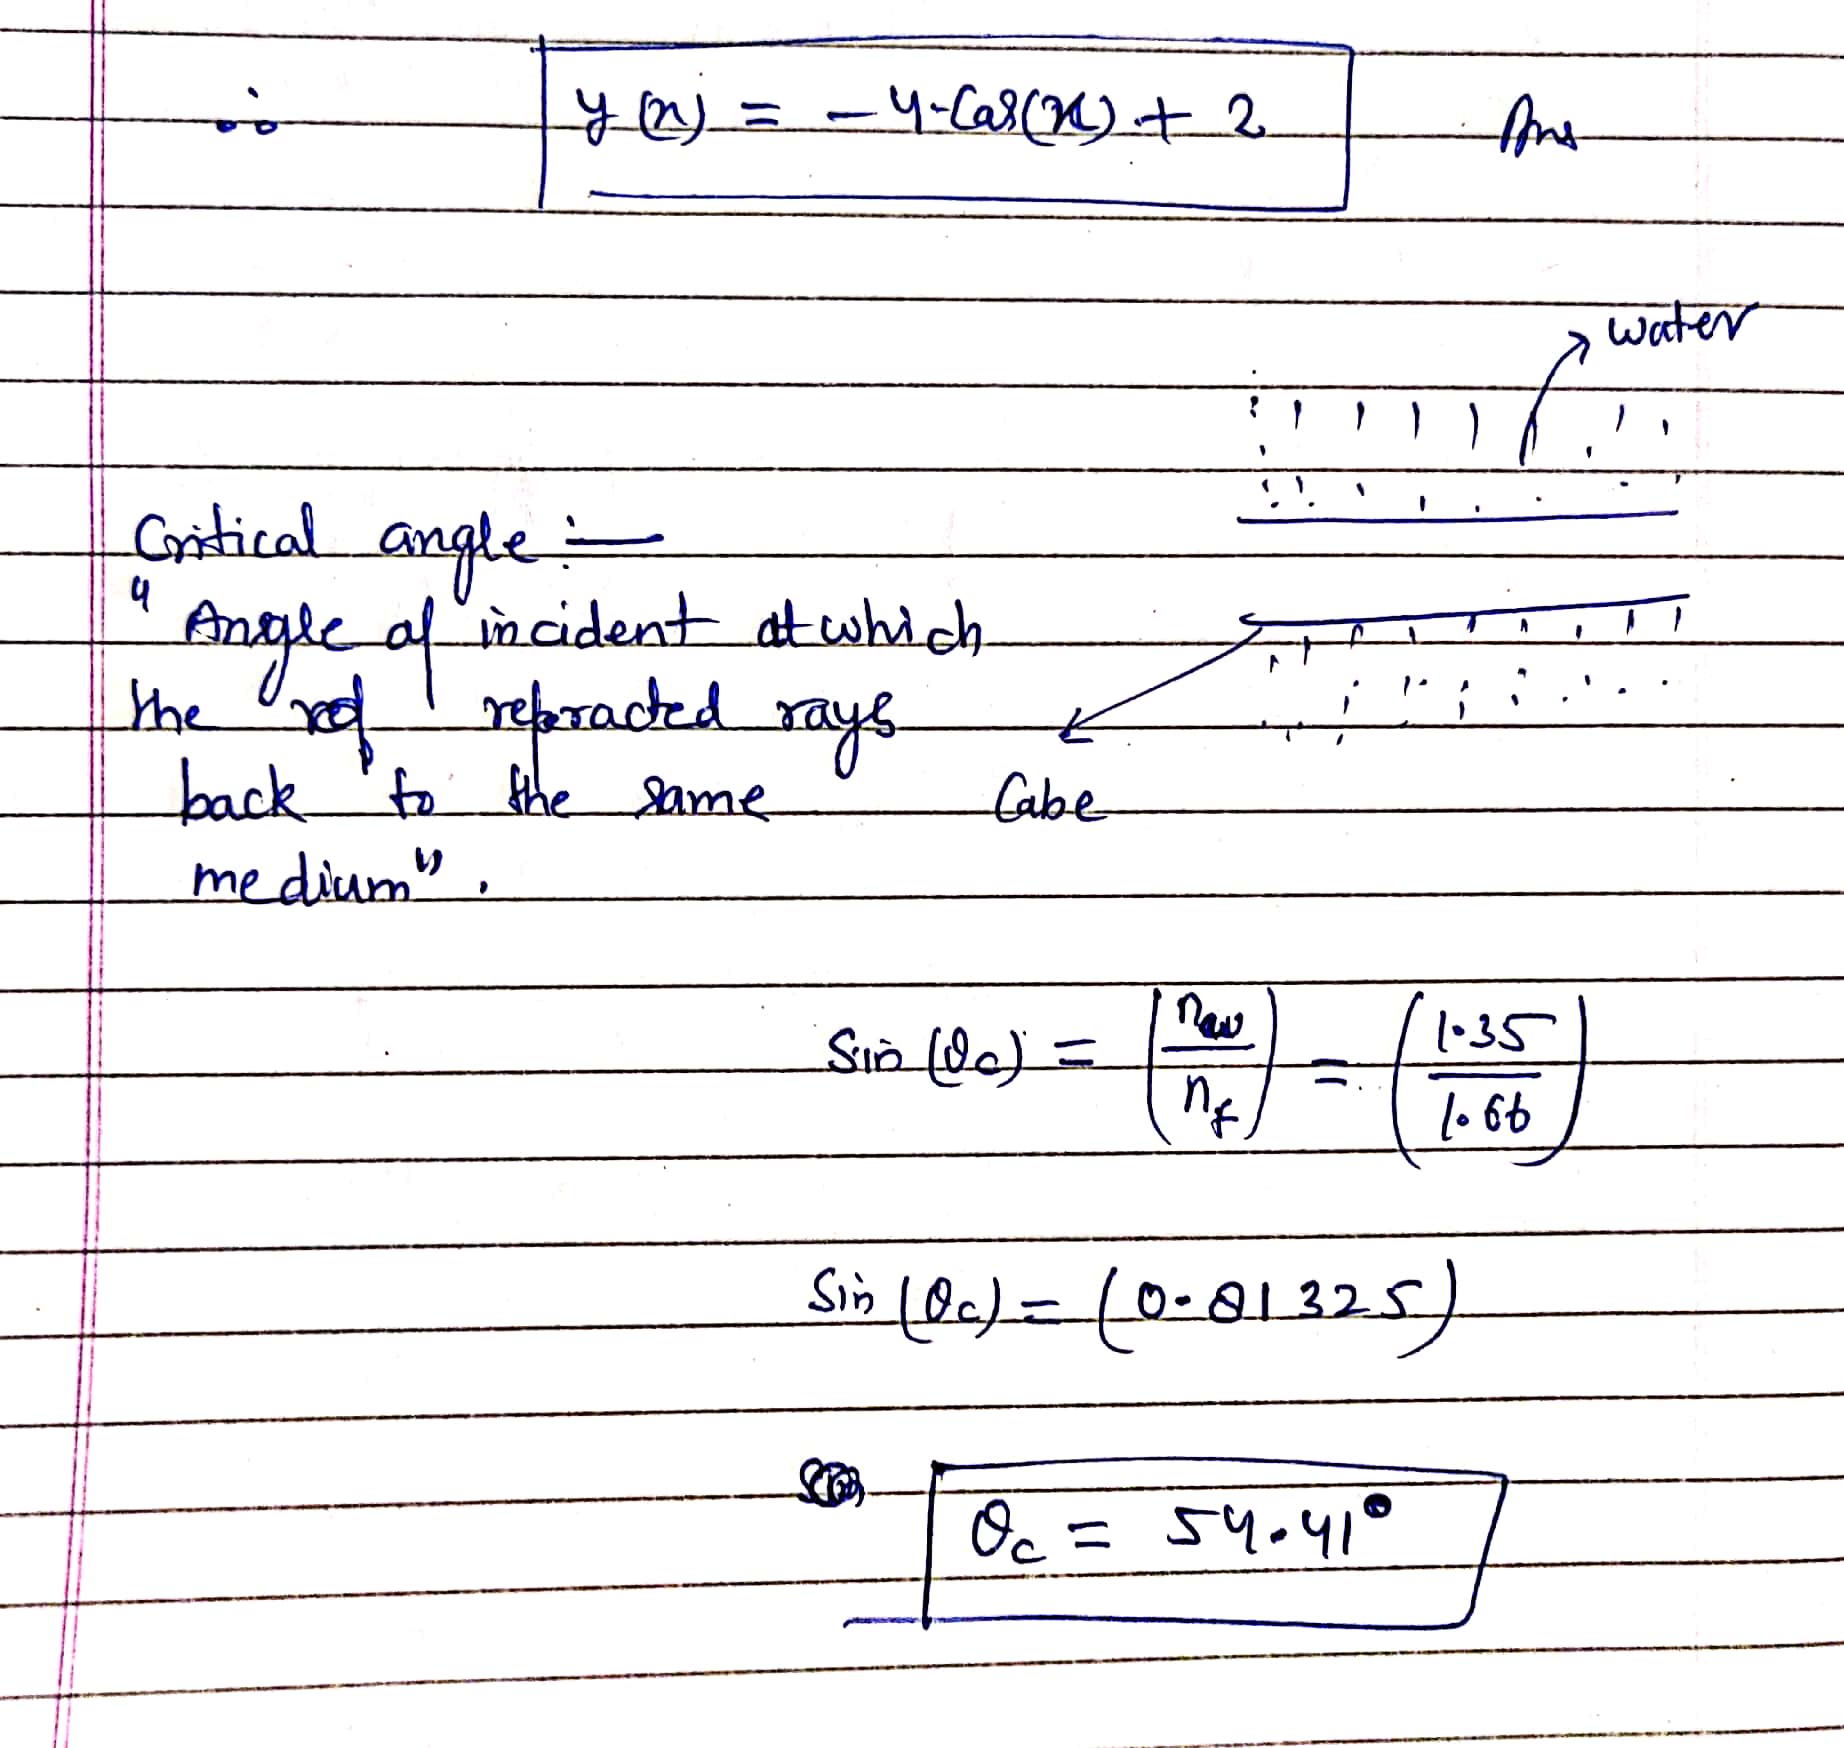 ∴ y(x) = -4·Cos(x) + 2 Ans
water
Critical angle :—
" Angle of incident at which
the refracted rays
back to the same
medium".
Cabe
Sin (θc) = (nw/nf) = (1.35/1.66)
Sin (θc) = (0.81325)
θc = 54.41°